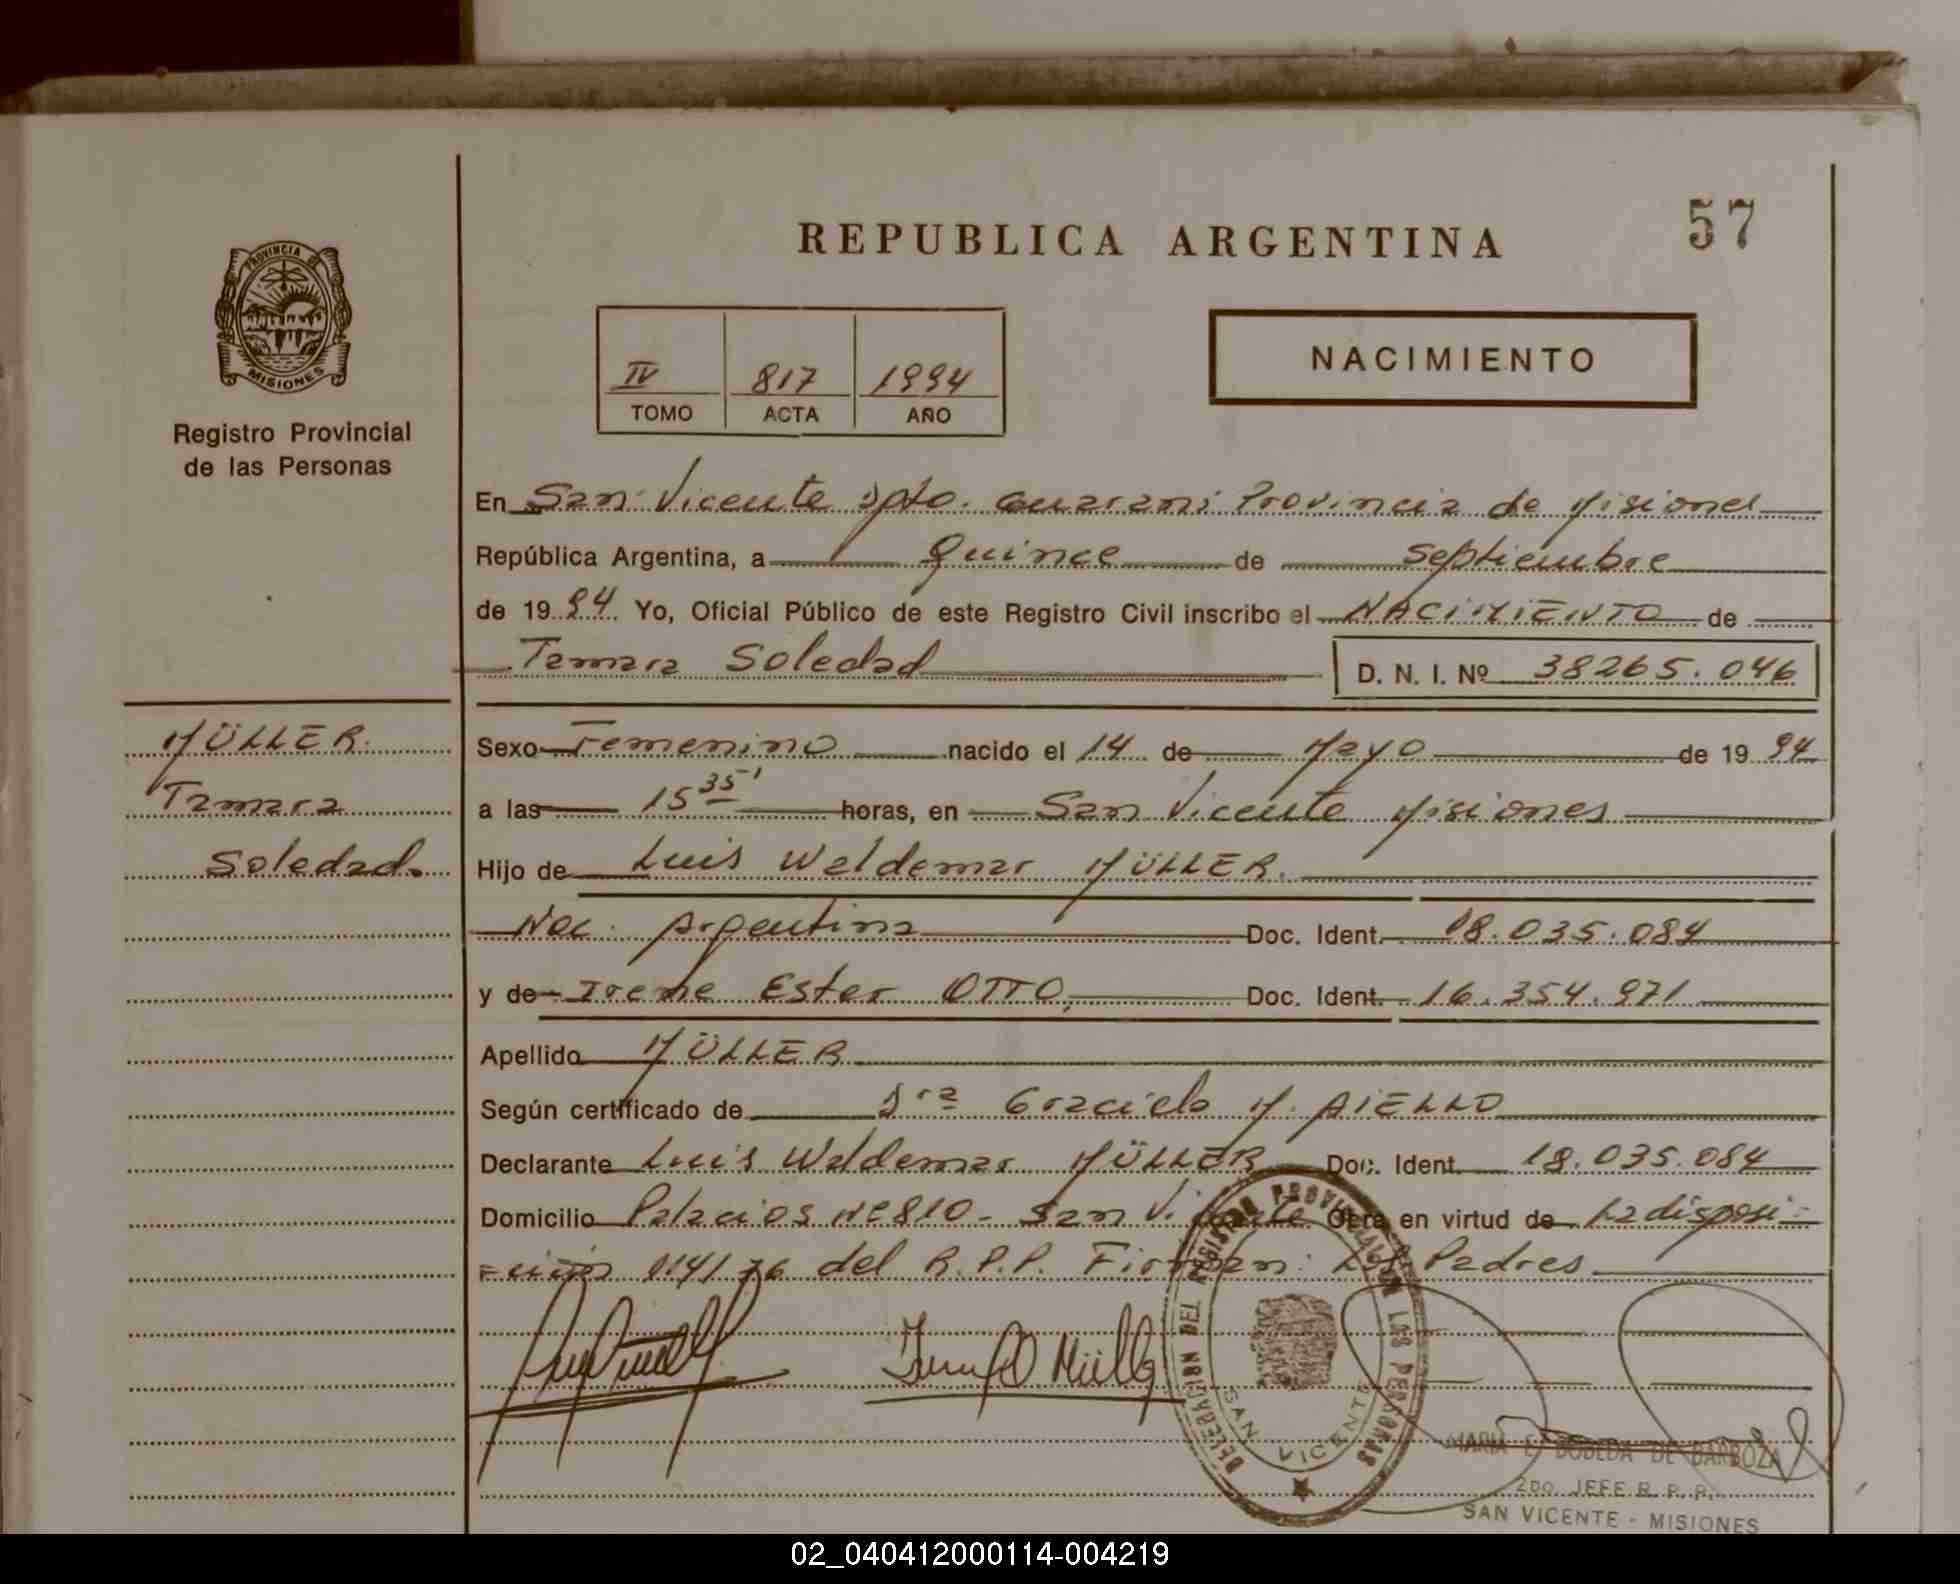 57
REPUBLICA ARGENTINA
PROVINCIA DE
MISIONES
Registro Provincial
de las Personas
IV 817 1994
TOMO ACTA AÑO
NACIMIENTO
En San Vicente Dpto. Guarani Provincia de Misiones
República Argentina, a Quince de Septiembre
de 1994. Yo, Oficial Público de este Registro Civil inscribo el NACIMIENTO de
Tamara Soledad D. N. I. Nº 38265.046
MÜLLER.
Tamara
Soledad.
Sexo Femenino nacido el 14 de Mayo de 1994
a las 15 35' horas, en San Vicente Misiones
Hijo de Luis Weldemar MÜLLER.
Nac. Argentina Doc. Ident. 18.035.084
y de Irene Ester OTTO, Doc. Ident. 16.354.971
Apellido MÜLLER
Según certificado de Dra Graciela M. AIELLO
Declarante Luis Waldemar MÜLLER Doc. Ident. 18.035.084
Domicilio Palacios Nº 810 - San Vicente Obra en virtud de La disposi-
ción 114/76 del R.P.P. Firman: Los Padres
DELEGACION DEL REGISTRO PROVINCIAL DE LAS PERSONAS
SAN VICENTE
MARIA E. BOBEDA DE BARBOZA
2DO. JEFE R. P. P.
SAN VICENTE - MISIONES
02_040412000114-004219